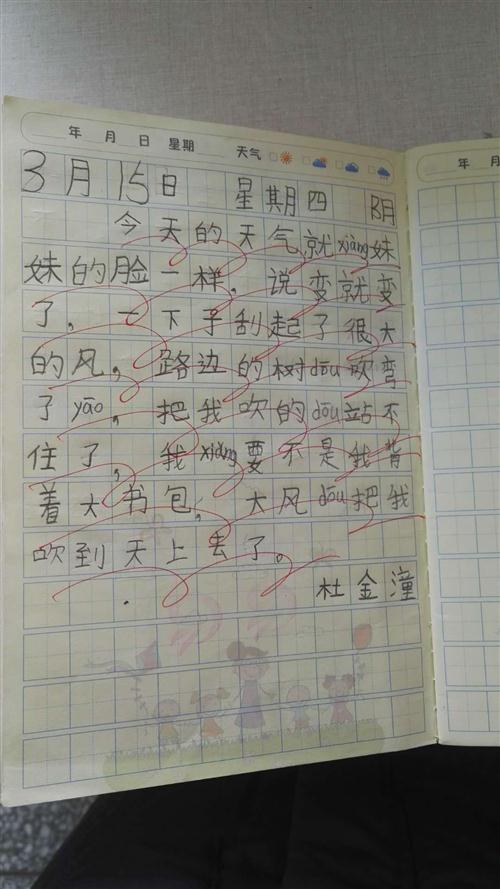 年 月 日 星期 天气
年 月
3月15日 星期四 阴
今天的天气,就xiàng妹
妹的脸一样,说变就变
了,一下子刮起了很大
的风,路边的树dōu吹弯
了yāo,把我吹的dōu站不
住了,我xiǎng要不是我背
着大书包,大风dōu把我
吹到天上去了。
杜金潼